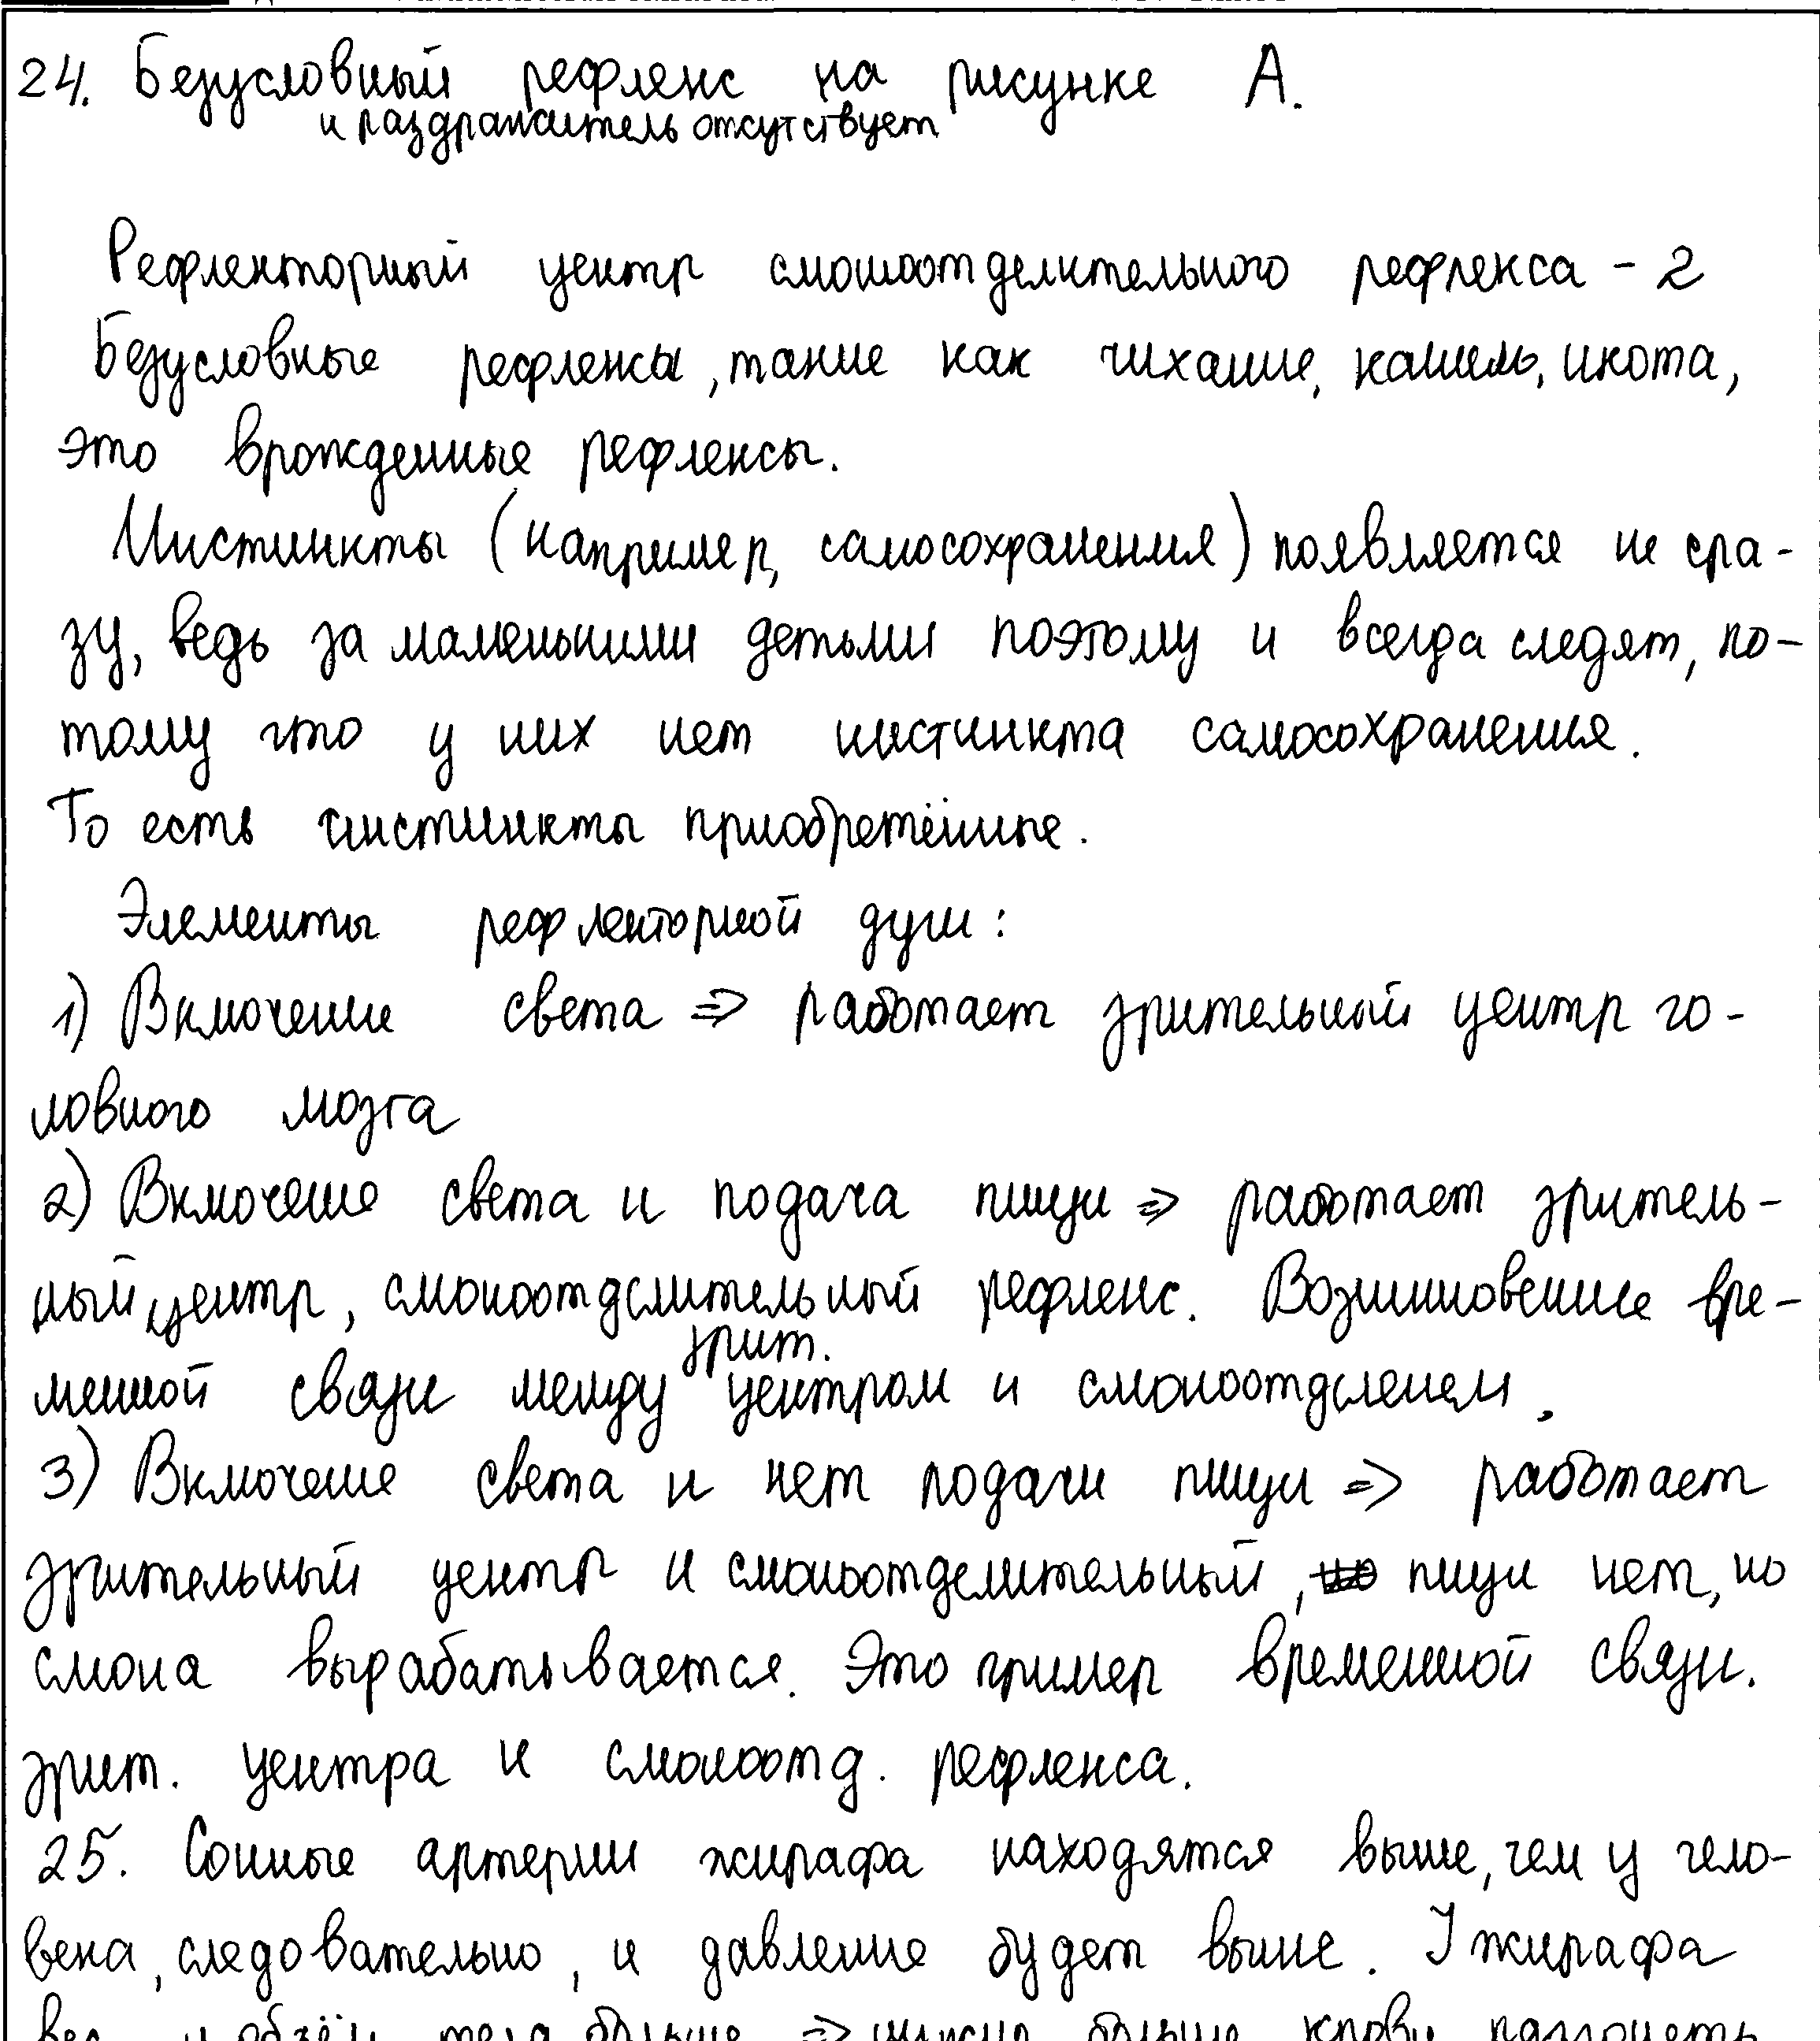 24. Безусловный рефлекс на рисунке А.
и раздражитель отсутствует
Рефлекторный центр слюноотделительного рефлекса - 2
Безусловные рефлексы, такие как чихание, кашель, икота,
это врожденные рефлексы.
Инстинкты (например, самосохранения) появляется не сра-
зу, ведь за маленькими детьми поэтому и всегда следят, по-
тому что у них нет инстинкта самосохранения.
То есть инстинкты приобретённые.
Элементы рефлекторной дуги:
1) Включение света ⇒ работает зрительный центр го-
ловного мозга
2) Включение света и подача пищи ⇒ работает зритель-
ный центр, слюноотделительный рефлекс. Возникновение вре-
зрит.
менной связи между центром и слюноотделением.
3) Включение света и нет подачи пищи ⇒ работает
зрительный центр и слюноотделительный, пищи нет, но
слюна вырабатывается. Это пример временной связи.
зрит. центра и слюноотд. рефлекса.
25. Сонные артерии жирафа находятся выше, чем у чело-
века, следовательно, и давление будет выше. У жирафа
вес и объём тела больше ⇒ нужно больше крови